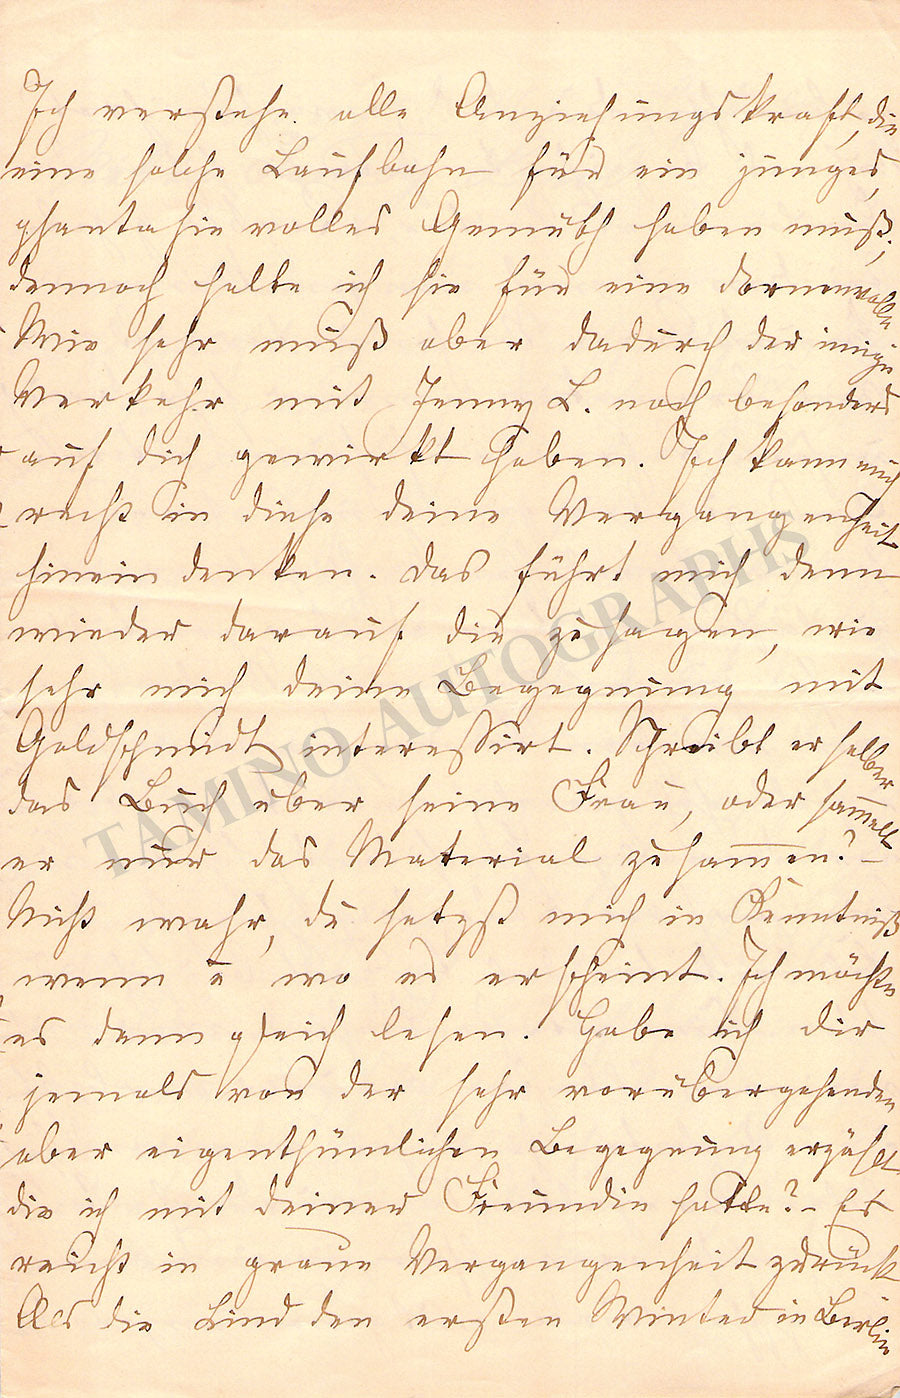 Ich verstehe alle Anziehungskraft, die
eine solche Laufbahn für ein junges,
phantasievolles Gemüth haben muß;
dennoch halte ich sie für eine dornenvolle
Wie sehr muß aber dadurch der innige
Verkehr mit Jenny L. noch besonders
auf dich gewirkt haben. Ich kann mich
recht in diese deine Vergangenheit
hinein denken. Das führt mich denn
wieder darauf dir zu sagen, wie
sehr mich deine Begegnung mit
Goldschmidt interessirt. Schreibt er selber
das Buch über seine Frau, oder sammelt
er nur das Material zusammen? –
Nicht wahr, du setzst mich in Kenntniß
wenn u wo es erscheint. Ich möchte
es dann gleich lesen. Habe ich dir
jemals von der sehr vorübergehenden
aber eigenthümlichen Begegnung erzählt
die ich mit deiner Freundin hatte? – Es
reicht in graue Vergangenheit zurück
Als die Lind den ersten Winter in Berlin
TAMINO AUTOGRAPHS